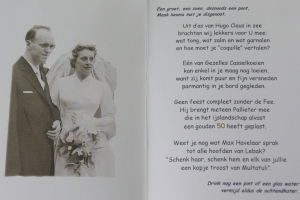 Een groet, een zoen, desnoods een poet,
Maak kennis met je disgenoot.
Uit d'as van Hugo Claus in zee
brachten wij lekkers voor U mee:
wat tong, wat zalm en wat garnalen
en hoe moet je "coquille" vertalen?
Eén van Gezelles Casselkoeien
kan enkel in je maag nog loeien,
want zij komt puur en fijn versneden
parmantig in je bord gegleden.
Geen feest compleet zonder de Fee.
Hij brengt meteen Pallieter mee
die in het ijslandschap alvast
een gouden 50 heeft geplast.
Weet je nog wat Max Havelaar sprak
tot alle hoofden van Lebak?
"Schenk haar, schenk hem en elk van jullie
een kopje troost van Multatuli."
Drink nog een pint of een glas water
vermijd aldus de achtendkater.